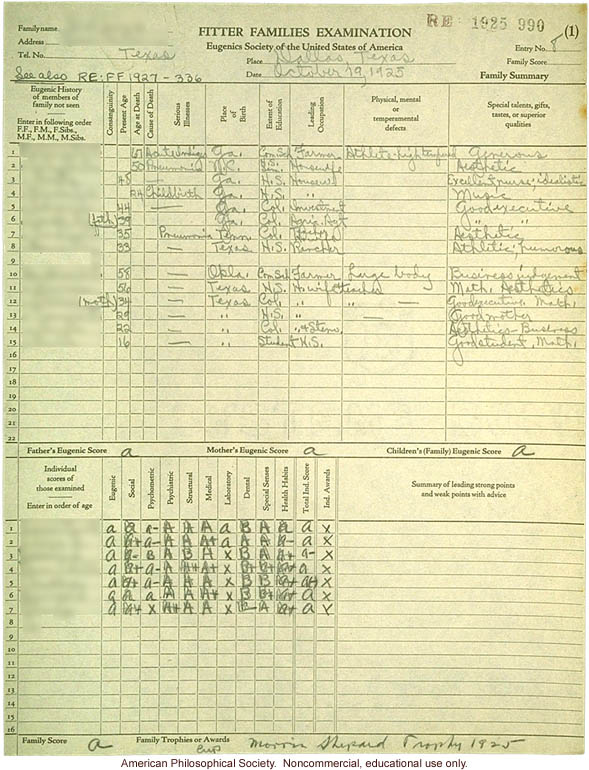 RE: 1925 990
(1)
Family name
FITTER FAMILIES EXAMINATION
Address
Eugenics Society of the United States of America
Entry No. 8
Tel. No.
Texas
Place Dallas, Texas
Family Score
See also RE:FF1927-336
Date October 19, 1925
Family Summary
Eugenic History of members of family not seen
Enter in following order
F.F., F.M., F.Sibs.
M.F., M.M., M.Sibs.
Consanguinity
Present Age
Age at Death
Cause of Death
Serious Illnesses
Place of Birth
Extent of Education
Leading Occupation
Physical, mental or temperamental defects
Special talents, gifts, tastes, or superior qualities
1 Ga. Com Sch Farmer Generous
2 50 Pneumonia H.S. Housewife Aesthetic
3 48 — Ga. H.S. Excellent nurse; idealistic
4 24 Childbirth Ga. H.S. " Music
5 44 — Ga. Col. Investment Good executive
6 (fath) 39 Ga. Col. "
7 35 Pneumonia Tenn. Col. Aesthetic
8 33 — Texas H.S. Rancher Athletic, humorous
9
10 58 — Okla. Com Sch Farmer Large body Business judgement
11 56 — Texas H.S. Math, Aesthetics
12 (moth) 34 Texas Col. " " — Good executive, Math,
13 29 — " H.S. " Good mother
14 22 " Col. " & Steno, Aesthetics - Business
15 16 — Student H.S. Good student, Math,
16
17
18
19
20
21
22
Father's Eugenic Score a Mother's Eugenic Score a Children's (Family) Eugenic Score a
Individual scores of those examined
Enter in order of age
Eugenic
Social
Psychometric
Psychiatric
Structural
Medical
Laboratory
Dental
Special Senses
Health Habits
Total Ind. Score
Ind. Awards
Summary of leading strong points and weak points with advice
1 a a- A A A a B A a x
2 a a+ a- A A A+ a A A a- a x
3 a B A B x B A a+ a- x
4 a a- A A+ x B+ a+ a x
5 a a- A A A x B B a+ x
6 a a a A A A+ x B a+ a x
7 a a+ x A+ A A x A a+ a x
8
9
10
11
12
13
14
15
16
Family Score a Family Trophies or Awards Cup Morris Shepard Trophy 1925
American Philosophical Society. Noncommercial, educational use only.